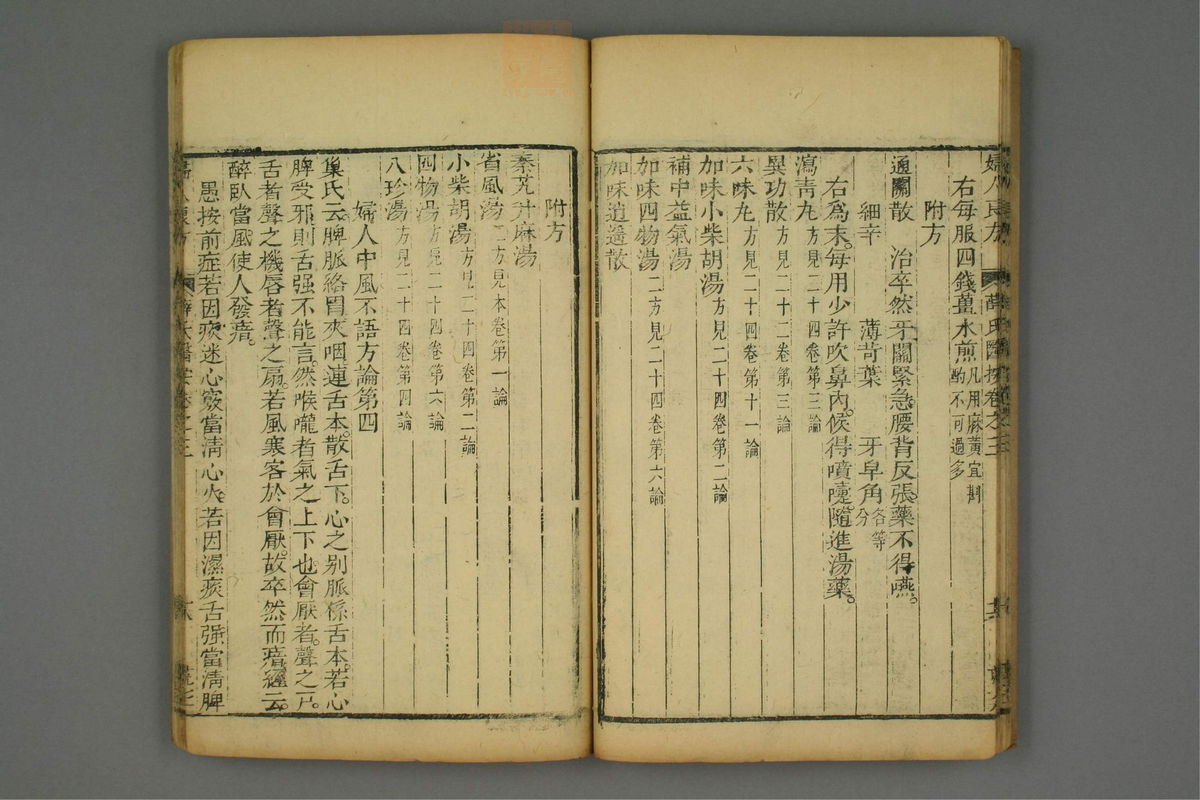 婦人良方 薛氏醫按卷之三
右每服四錢薑水煎凡用麻黃宜斟酌不可過多
附方
通關散 治卒然牙關緊急腰背反張藥不得嚥。
細辛 薄苛葉 牙皁角各等分
右爲末。每用少許吹鼻內。候得噴嚏。隨進湯藥。
瀉靑丸方見二十四卷第三論
異功散方見二十二卷第三論
六味丸方見二十四卷第十一論
加味小柴胡湯方見二十四卷第二論
補中益氣湯
加味四物湯二方見二十四卷第六論
加味逍遙散
附方
秦艽升麻湯
省風湯二方見本卷第一論
小柴胡湯方見二十四卷第二論
四物湯方見二十四卷第六論
八珍湯方見二十四卷第四論
婦人中風不語方論第四
巢氏云。脾脈絡胃夾咽連舌本。散舌下。心之別脈係舌本。若心
脾受邪則舌强不能言。然喉嚨者氣之上下也。會厭者。聲之戶。
舌者聲之機。唇者聲之扇。若風寒客於會厭。故卒然而瘖。經云。
醉臥當風使人發瘖。
愚按前症若因痰迷心竅當淸心火。若因濕痰舌强當淸脾